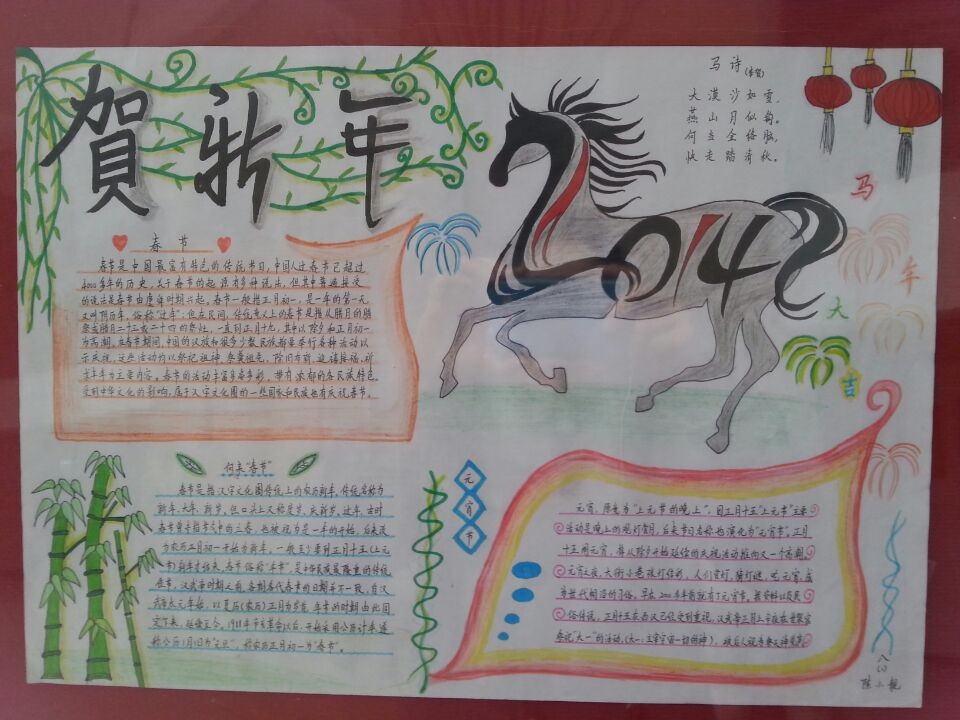 賀新年
马诗(李贺)
大漠沙如雪,
燕山月似钩。
何当金络脑,
快走踏清秋。
马年大吉
2014
春节
春节是中国最富有特色的传统节日,中国人过春节已超过
4000多年的历史,关于春节的起源有多种说法,但其中普遍接受
的说法是春节由虞舜时期兴起。春节一般指正月初一,是一年的第一天
又叫阴历年,俗称“过年”;但在民间,传统意义上的春节是指从腊月的腊
祭或腊月二十三或二十四的祭灶,一直到正月十九,其中以除夕和正月初一
为高潮。在春节期间,中国的汉族和很多少数民族都要举行各种活动以
示庆祝,这些活动均以祭祀祖神、祭奠祖先、除旧布新、迎禧接福、祈
求丰年为主要内容。春节的活动丰富多彩,带有浓郁的各民族特色。
受到中华文化的影响,属于汉字文化圈的一些国家和民族也有庆祝春节。
何来“春节”
春节是指汉字文化圈传统上的农历新年,传统名称为
新年、大年、新岁,但口头上又称度岁、庆新岁、过年。古时
春节曾专指节气中的立春,也被视为是一年的开始,后来改
为农历正月初一开始为新年。一般至少要到正月十五(上元
节)新年才结束。春节俗称“年节”,是中华民族最隆重的传统
佳节。汉武帝时期之前,各朝各代春节的日期并不一致,自汉
武帝太初元年始,以夏历(农历)正月为岁首,年节的时期由此固
定下来,延续至今。1911年辛亥革命以后,开始采用公历计年,遂
称公历1月1日为“元旦”,称农历正月初一为“春节”。
元宵节
元宵,原意为“上元节的晚上”,因正月十五“上元节”主要
活动是晚上的观灯赏月,后来节日名称也演化为“元宵节”。正月
十五闹元宵,将从除夕开始延续的庆祝活动推向又一个高潮。
元宵之夜,大街小巷张灯结彩,人们赏灯,猜灯谜,吃元宵,成
为世代相沿的习俗。早在2000多年前就有了元宵节,
俗传说,正月十五在西汉已经受到重视,汉武帝正月上辛夜在甘泉宫
祭祀“太一”的活动,(太一:主宰宇宙一切的神),
八(1)